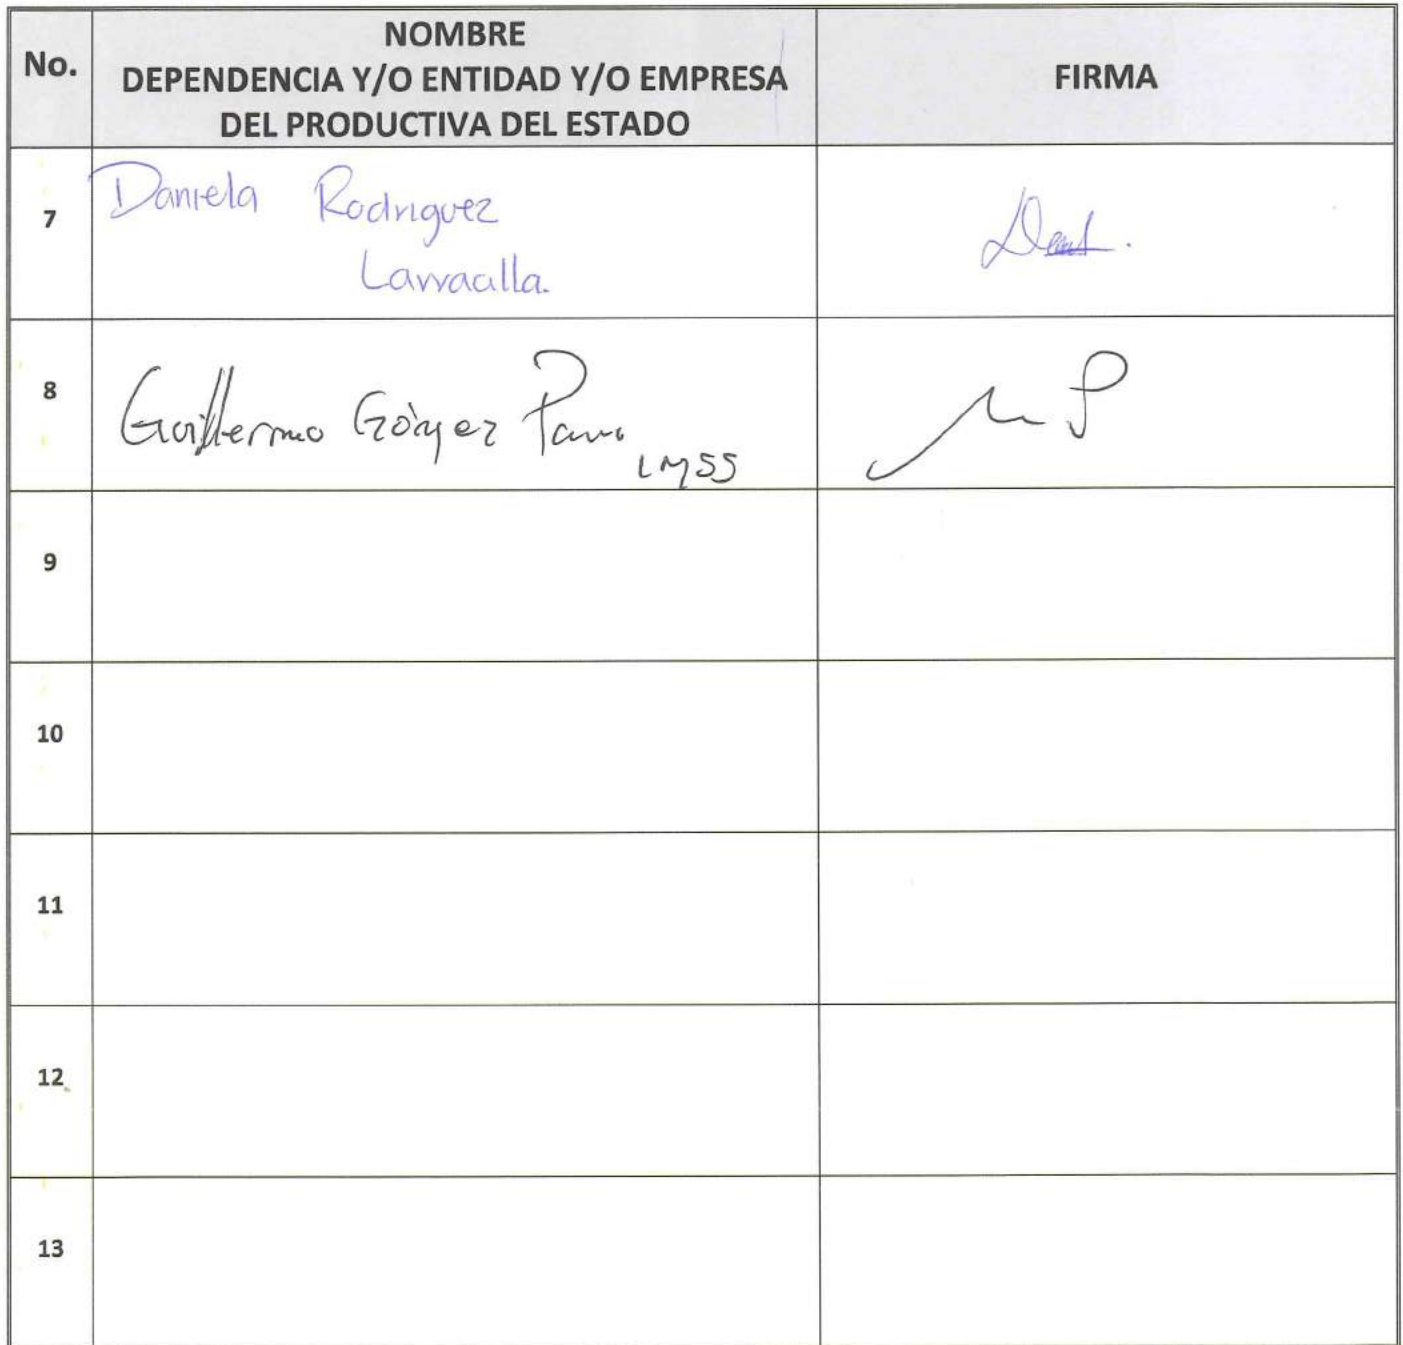 No.
NOMBRE
DEPENDENCIA Y/O ENTIDAD Y/O EMPRESA
DEL PRODUCTIVA DEL ESTADO
FIRMA
7
Daniela Rodriguez
Larracilla.
8
Guillermo Gómez
IMSS
9
10
11
12
13